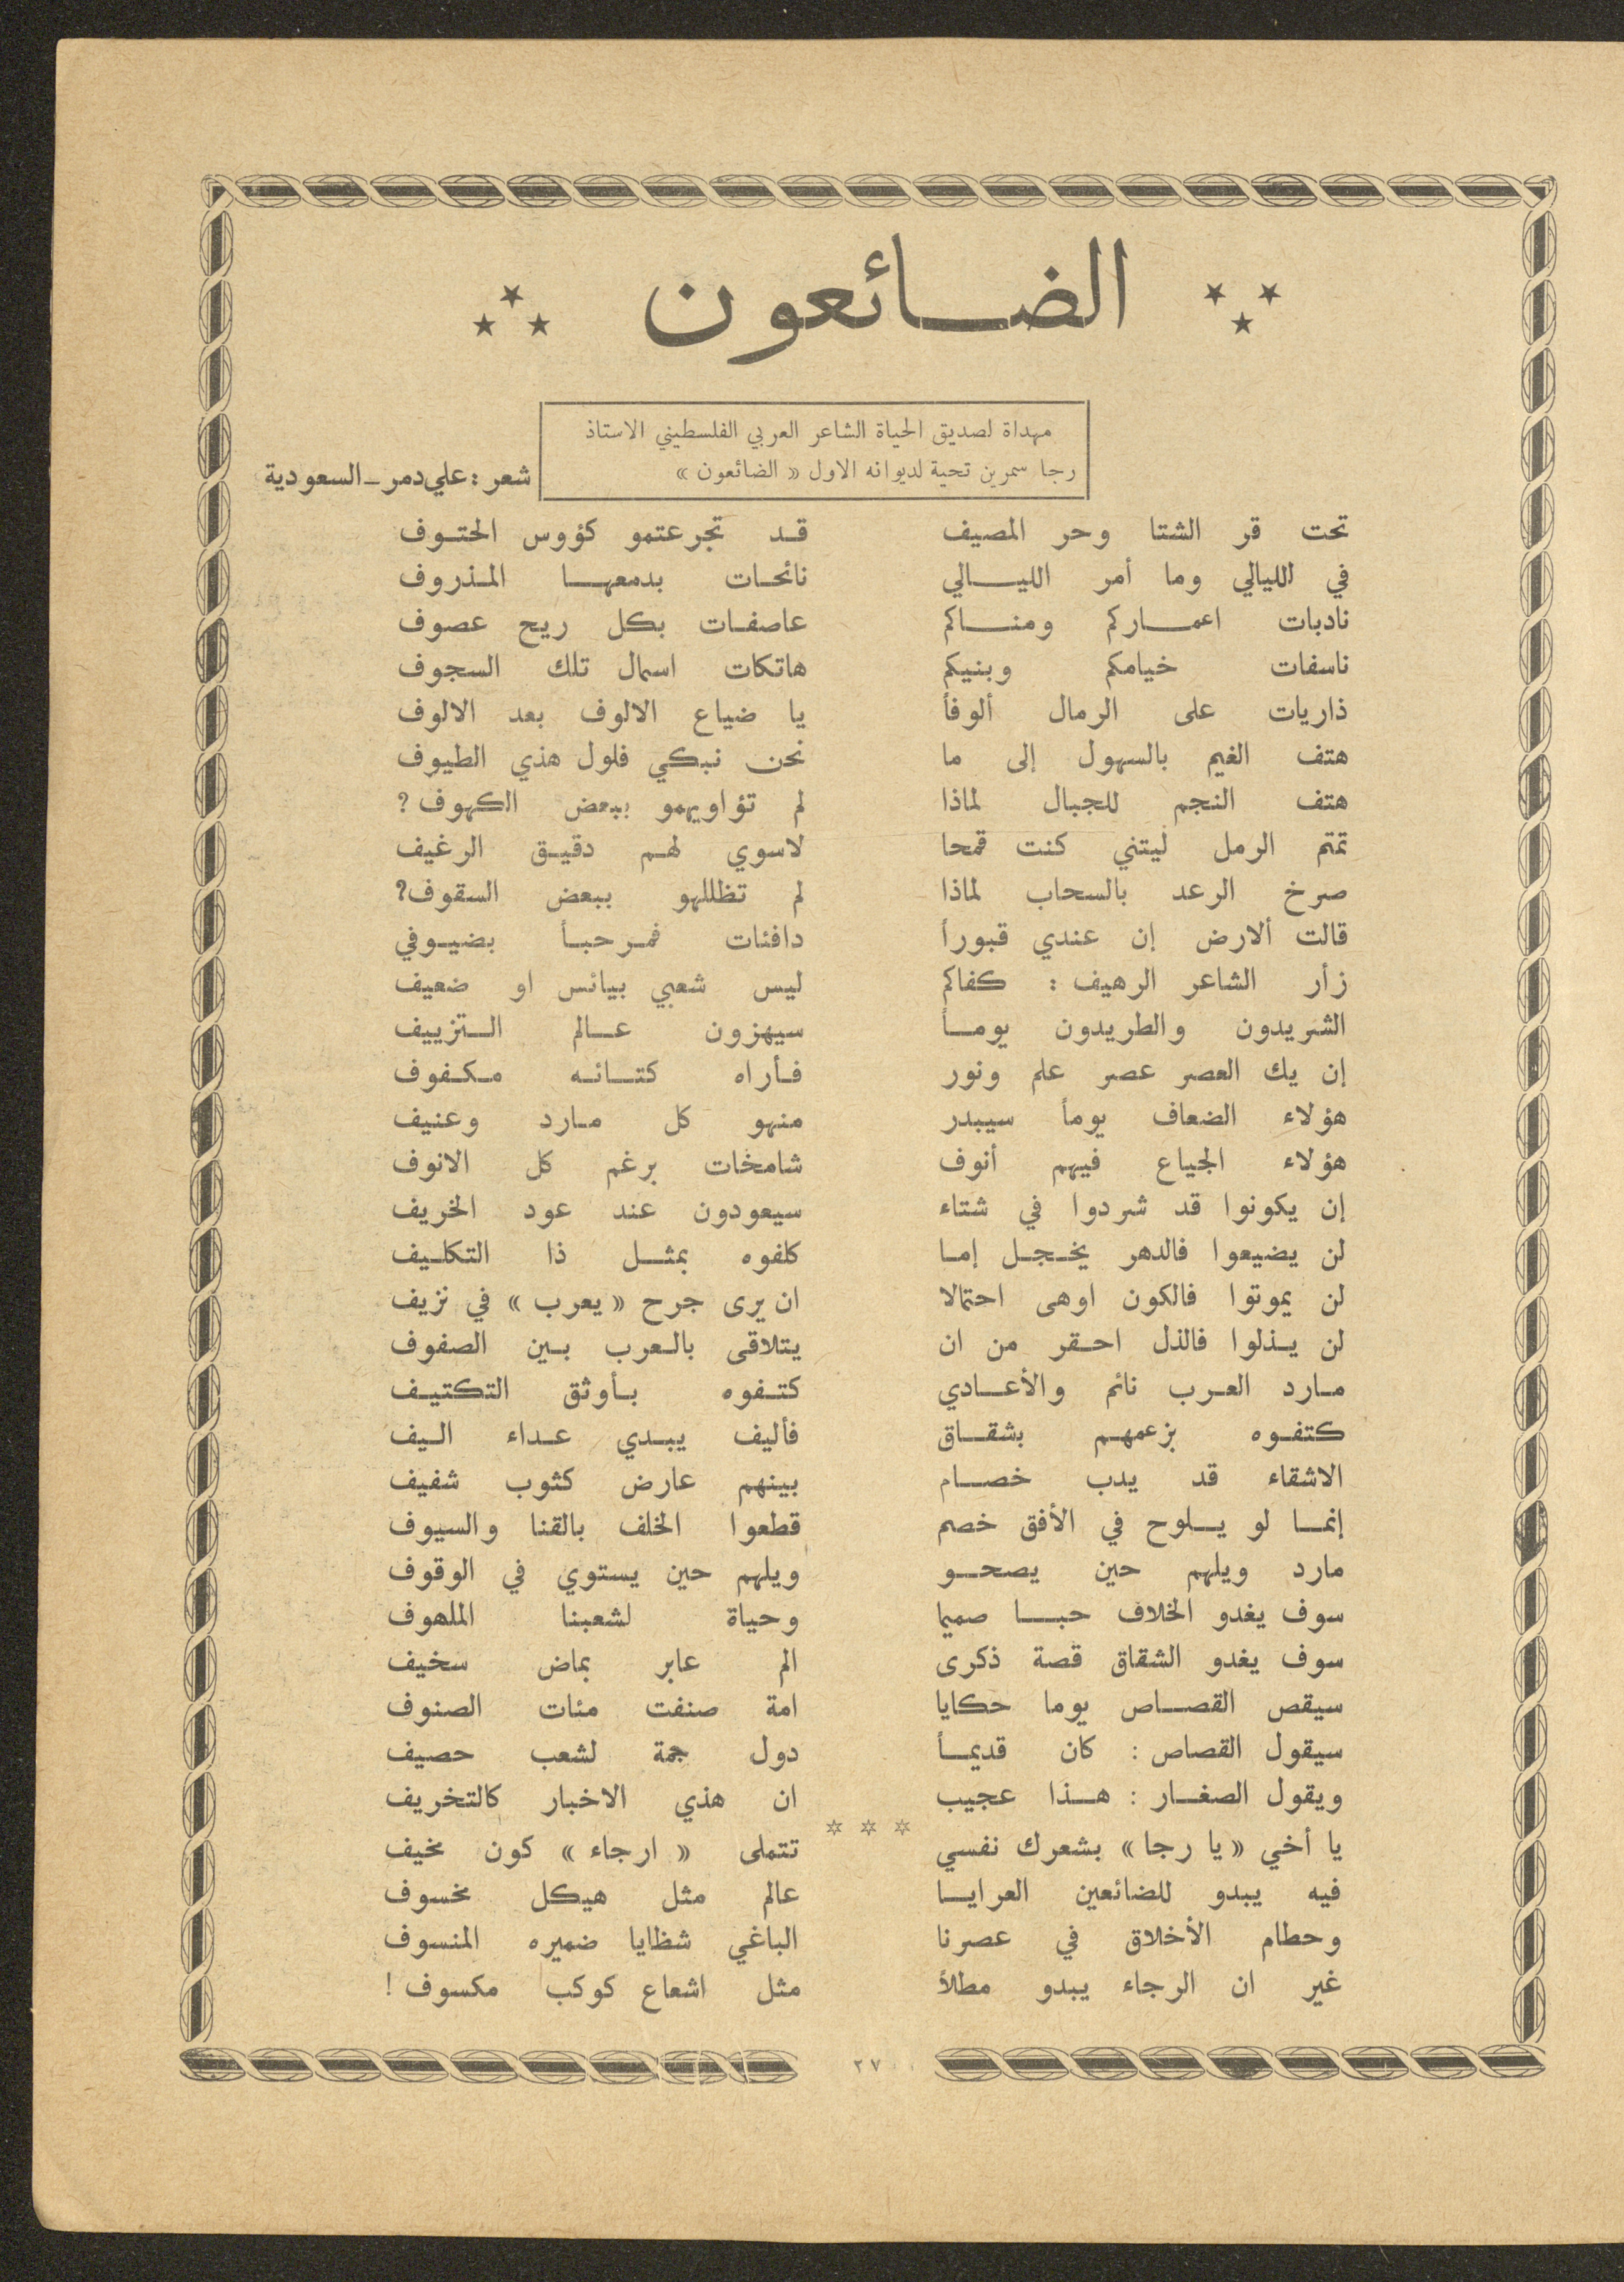 الضائعون
مهداة لصديق الحياة الشاعر العربي الفلسطيني الاستاذ
رجا سمرين تحية لديوانه الاول « الضائعون »
شعر : علي دمر - السعودية
تحت قر الشتا وحر المصيف قد تجرعتمو كؤوس الحتوف
في الليالي وما أمر الليالي نائحات بدمعها المذروف
نادبات اعماركم ومناكم عاصفات بكل ريح عصوف
ناسفات خيامكم وبنيكم هاتكات اسمال تلك السجوف
ذاريات على الرمال ألوفاً يا ضياع الالوف بعد الالوف
هتف الغيم بالسهول إلى ما نحن نبكي فلول هذي الطيوف
هتف النجم للجبال لماذا لم تؤاويهمو ببعض الكهوف ؟
تمتم الرمل ليتني كنت قمحا لاسوي لهم دقيق الرغيف
صرخ الرعد بالسحاب لماذا لم تظللهو ببعض السقوف؟
قالت ألارض إن عندي قبوراً دافئات فمرحباً بضيوفي
زأر الشاعر الرهيف : كفاكم ليس شعبي بيائس او ضعيف
الشريدون والطريدون يوماً سيهزون عالم التزييف
إن يك العصر عصر علم ونور فأراه كتائه مكفوف
هؤلاء الضعاف يوماً سيبدر منهو كل مارد وعنيف
هؤلاء الجياع فيهم أنوف شامخات برغم كل الانوف
إن يكونوا قد شردوا في شتاء سيعودون عند عود الخريف
لن يضيعوا فالدهر يخجل إما كلفوه بمثل ذا التكليف
لن يموتوا فالكون اوهى احتمالا ان يرى جرح « يعرب » في نزيف
لن يذلوا فالذل احقر من ان يتلاقى بالعرب بين الصفوف
مارد العرب نائم والأعادي كتفوه بأوثق التكتيف
كتفوه بزعمهم بشقاق فأليف يبدي عداء اليف
الاشقاء قد يدب خصام بينهم عارض كثوب شفيف
إنما لو يلوح في الأفق خصم قطعوا الخلف بالقنا والسيوف
مارد ويلهم حين يصحو ويلهم حين يستوي في الوقوف
سوف يغدو الخلاف حبا صميما وحياة لشعبنا الملهوف
سوف يغدو الشقاق قصة ذكرى الم عابر بماض سخيف
سيقص القصاص يوما حكايا امة صنفت مئات الصنوف
سيقول القصاص : كان قديماً دول جمة لشعب حصيف
ويقول الصغار : هذا عجيب ان هذي الاخبار كالتخريف
* * *
يا أخي « يا رجا » بشعرك نفسي تتملى « ارجاء » كون مخيف
فيه يبدو للضائعين العرايا عالم مثل هيكل مخسوف
وحطام الأخلاق في عصرنا الباغي شظايا ضميره المنسوف
غير ان الرجاء يبدو مطلاً مثل اشعاع كوكب مكسوف !
٢٧